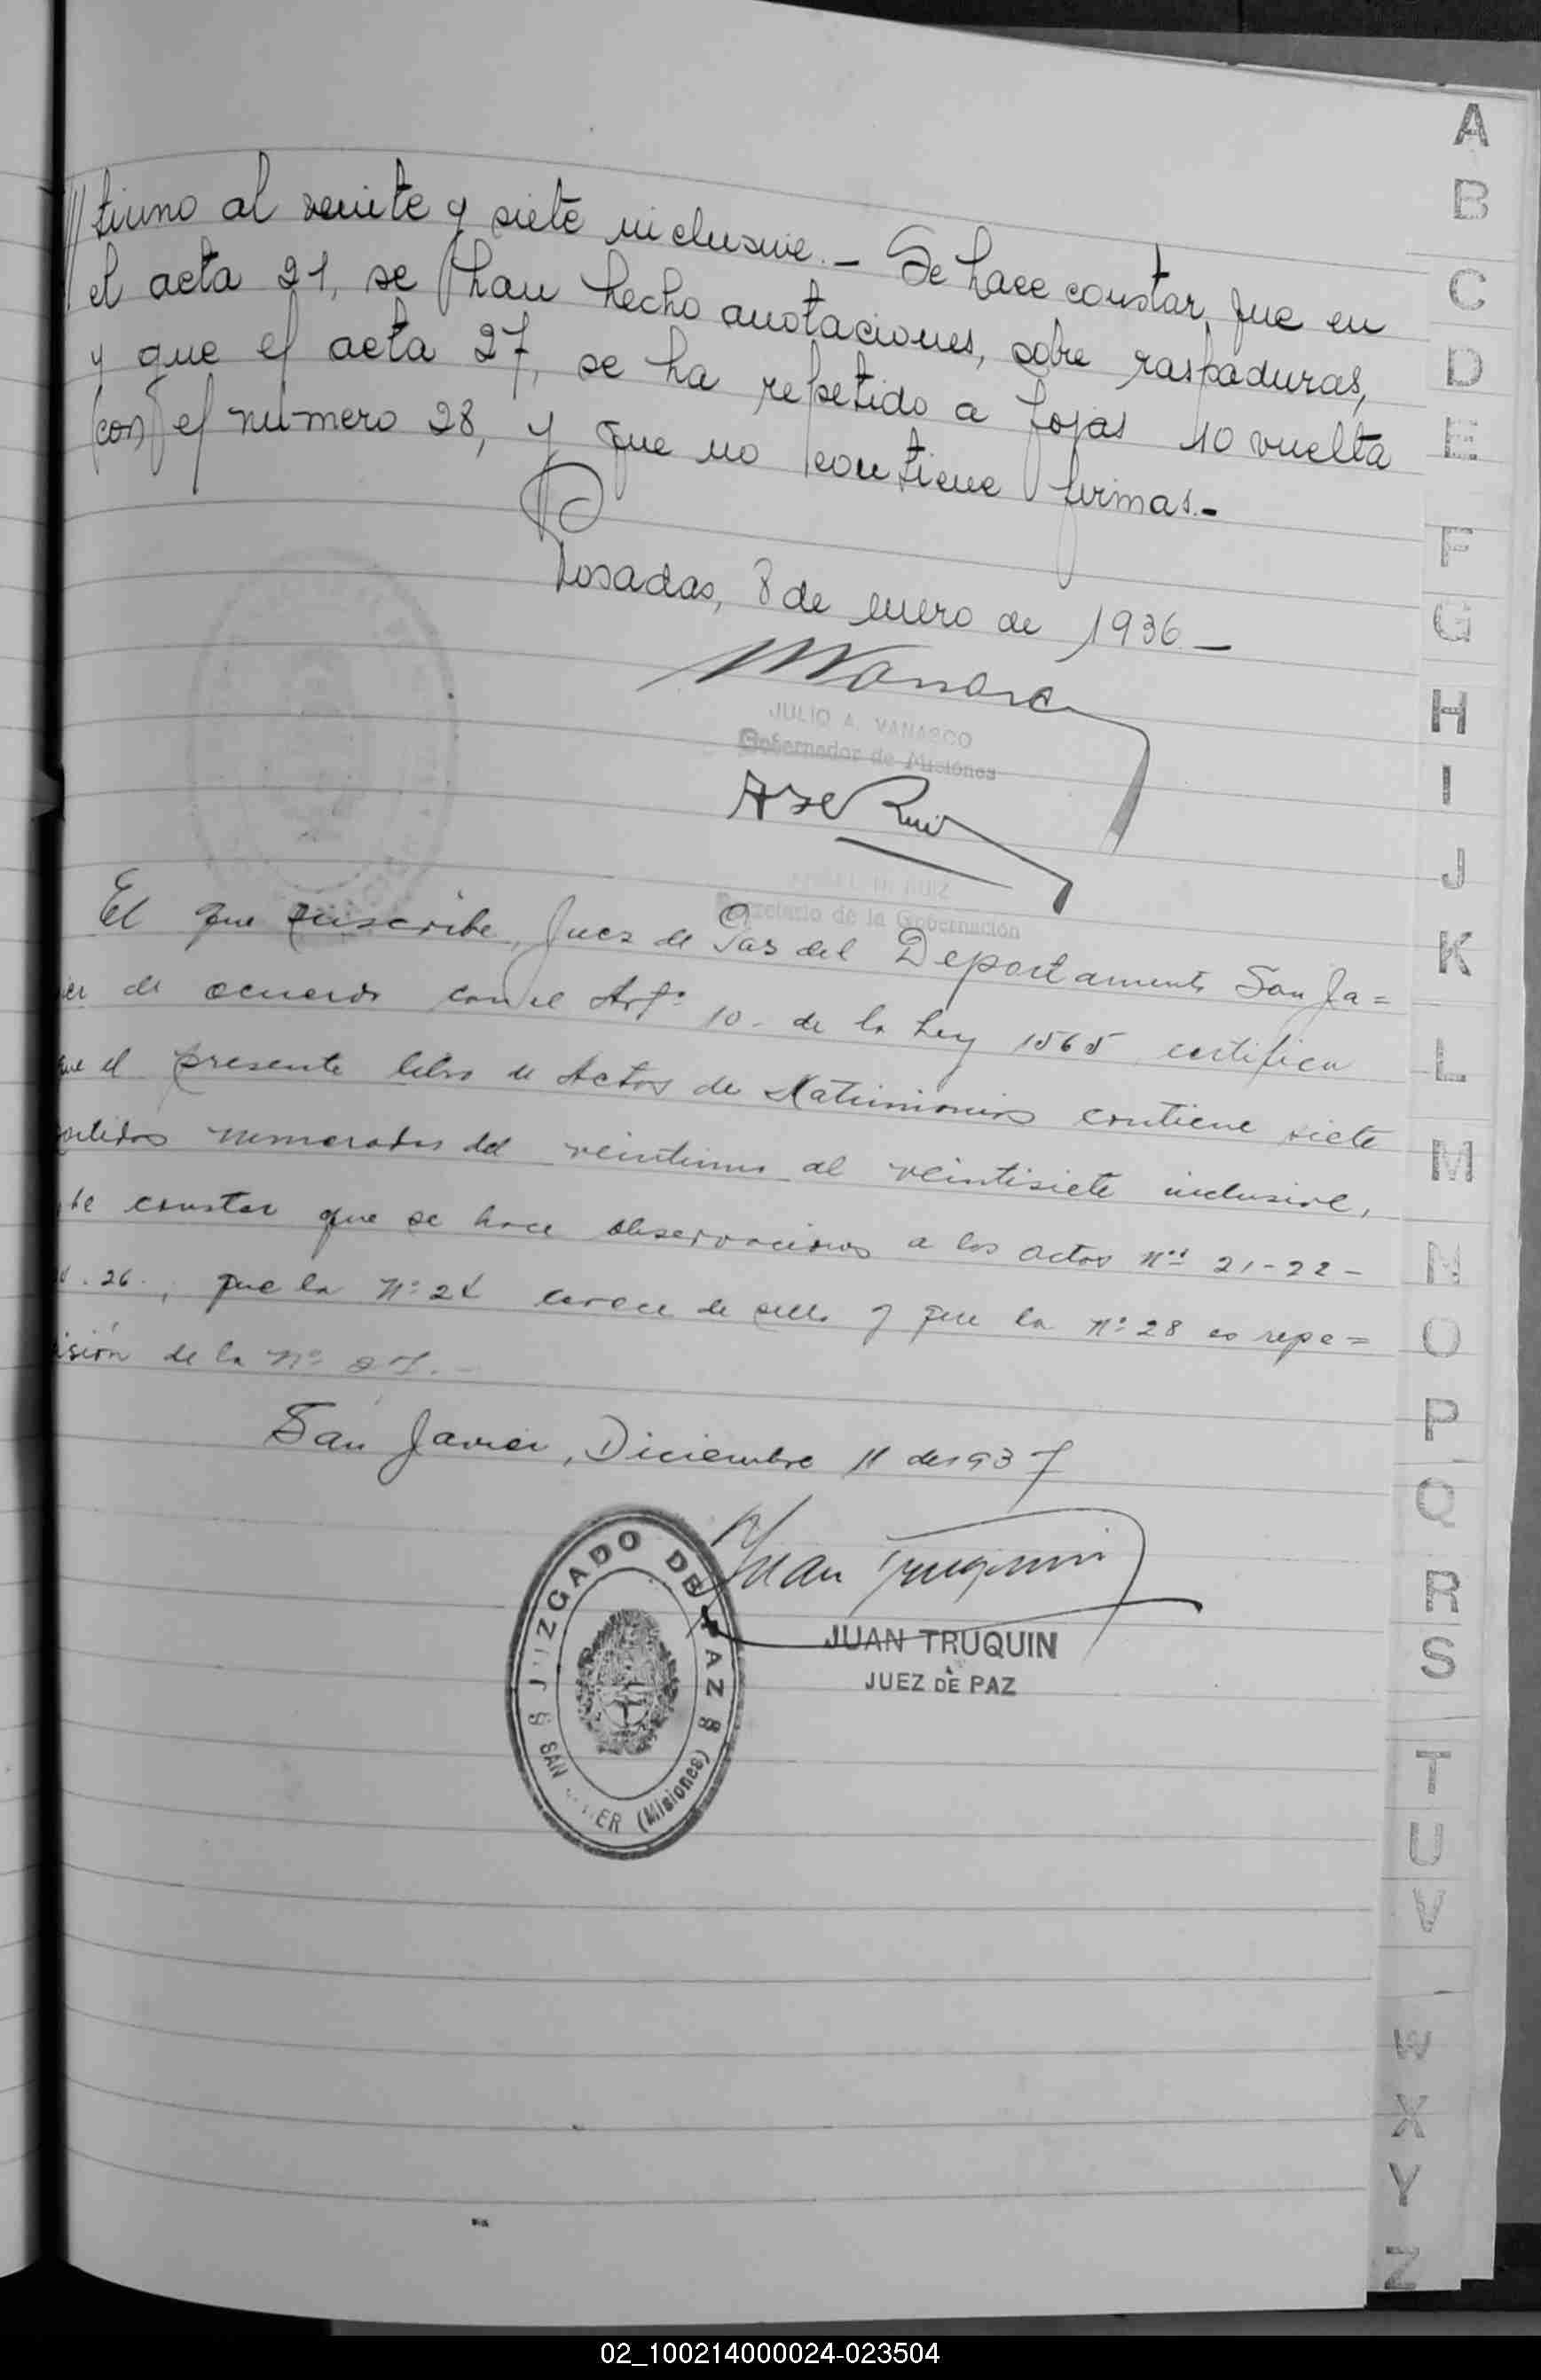 /// tiuno al veinte y siete inclusive.- Se hace constar, que en
el acta 21, se han hecho anotaciones, sobre raspaduras,
y que el acta 27, se ha repetido a fojas 10 vuelta
con el número 28, y que no contiene firmas.-
Posadas, 8 de enero de 1936-
JULIO A. VANASCO
Gobernador de Misiones
RUIZ
Secretario de la Gobernación
El que suscribe, Juez de Paz del Departamento San Ja=
de acuerdo con el Artº 10- de la Ley 1565, certifica
que el presente libro de Actas de Matrimonios contiene siete
partidas numeradas del veintiuno al veintisiete inclusive,
constar que se hace observaciones a las actas nos 21-22-
26., que la Nº 24 carece de sello y que la nº 28 es repe=
isión de la Nº 27.-
San Javier, Diciembre 11 de 1937
Juan Truquin
JUAN TRUQUIN
JUEZ DE PAZ
JUZGADO DE PAZ
SAN JAVIER (Misiones)
A
B
C
D
E
F
G
H
I
J
K
L
M
N
O
P
Q
R
S
T
U
V
W
X
Y
Z
02_100214000024-023504